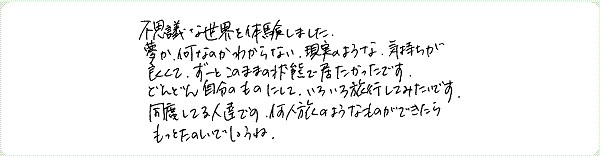 不思議な世界を体験しました.
夢か,何なのかわからない,現実のような,気持ちが
良くて,ずーとこのままの状態で居たかったです.
どんどん自分のものにして,いろいろ旅行してみたいです.
同席してる人達での,何人旅のようなものができたら
もっとたのしいでしょうね.